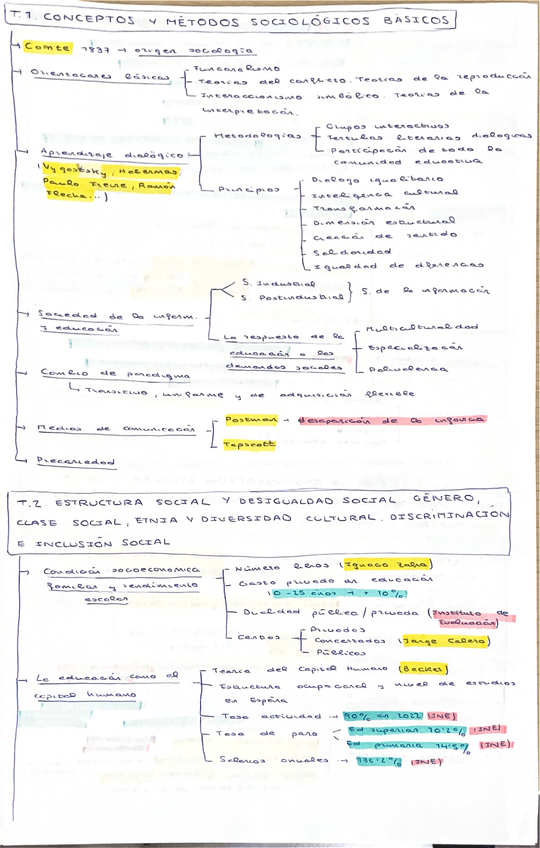 T.1. CONCEPTOS Y MÉTODOS SOCIOLÓGICOS BÁSICOS
Comte 1837 → origen sociología
Orientaciones básicas
Funcionalismo
Teorías del conflicto. Teorías de la reproducción
Interaccionismo simbólico. Teorías de la
interpretación.
Aprendizaje dialógico
(Vygostsky, Habermas,
Paulo Freire, Ramón
Flecha...)
Metodologías
Grupos interactivos
Tertulias literarias dialógicas
Participación de toda la
comunidad educativa
Principios
Diálogo igualitario
Inteligencia cultural
Transformación
Dimensión estructural
Creación de sentido
Solidaridad
Igualdad de diferencias
Sociedad de la inform.
y educación
S. Industrial
S. Postindustrial
S. de la información
La respuesta de la
educación a las
demandas sociales
Multiculturalidad
Especialización
Polivalencia
Cambio de paradigma
↳ Transitivo, uniforme y de adquisición flexible
Medios de comunicación
Postman → desaparición de la infancia
Tapscott
Precariedad
T.2. ESTRUCTURA SOCIAL Y DESIGUALDAD SOCIAL. GÉNERO,
CLASE SOCIAL, ETNIA Y DIVERSIDAD CULTURAL. DISCRIMINACIÓN
E INCLUSIÓN SOCIAL
Condición socioeconómica
familiar y rendimiento
escolar
Número libros (Ignacio Zafra)
Gasto privado en educación
10-25 años → + 10%
Dualidad pública/privada (Instituto de
Evaluación)
Centros
Privados
Concertados (Jorge Calero)
Públicos
La educación como el
capital humano
Teoría del Capital Humano (Becker)
Estructura ocupacional y nivel de estudios
en España
Tasa actividad → 90% en 2022 (INE)
Tasa de paro
Ed superior 10'2% (INE)
Ed primaria 14'5% (INE)
Salarios anuales → 136'2% (INE)